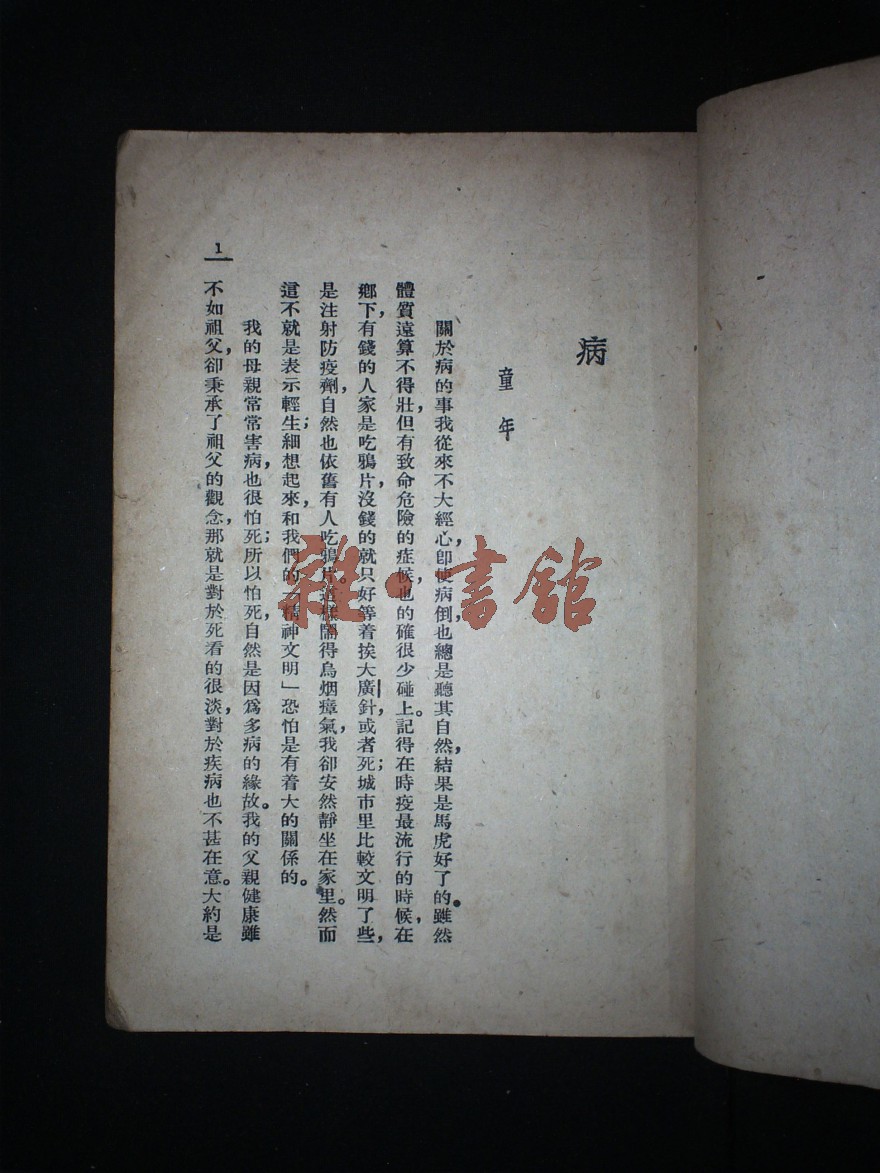 病
童年
關於病的事我從來不大經心，即使病倒，也總是聽其自然，結果是馬虎好了的。雖然
體質遠算不得壯，但有致命危險的症候，也的確很少碰上。記得在時疫最流行的時候，在
鄉下，有錢的人家是吃鴉片，沒錢的就只好等着挨大廣針，或者死；城市里比較文明了些，
是注射防疫劑，自然也依舊有人吃鴉片。這樣鬧得烏烟瘴氣，我卻安然靜坐在家里。然而
這不就是表示輕生；細想起來，和我們的「精神文明」恐怕是有着大的關係的。
我的母親常常害病，也很怕死；所以怕死，自然是因爲多病的緣故。我的父親健康雖
不如祖父，卻秉承了祖父的觀念，那就是對於死看的很淡，對於疾病也不甚在意。大約是
1
雜·書館